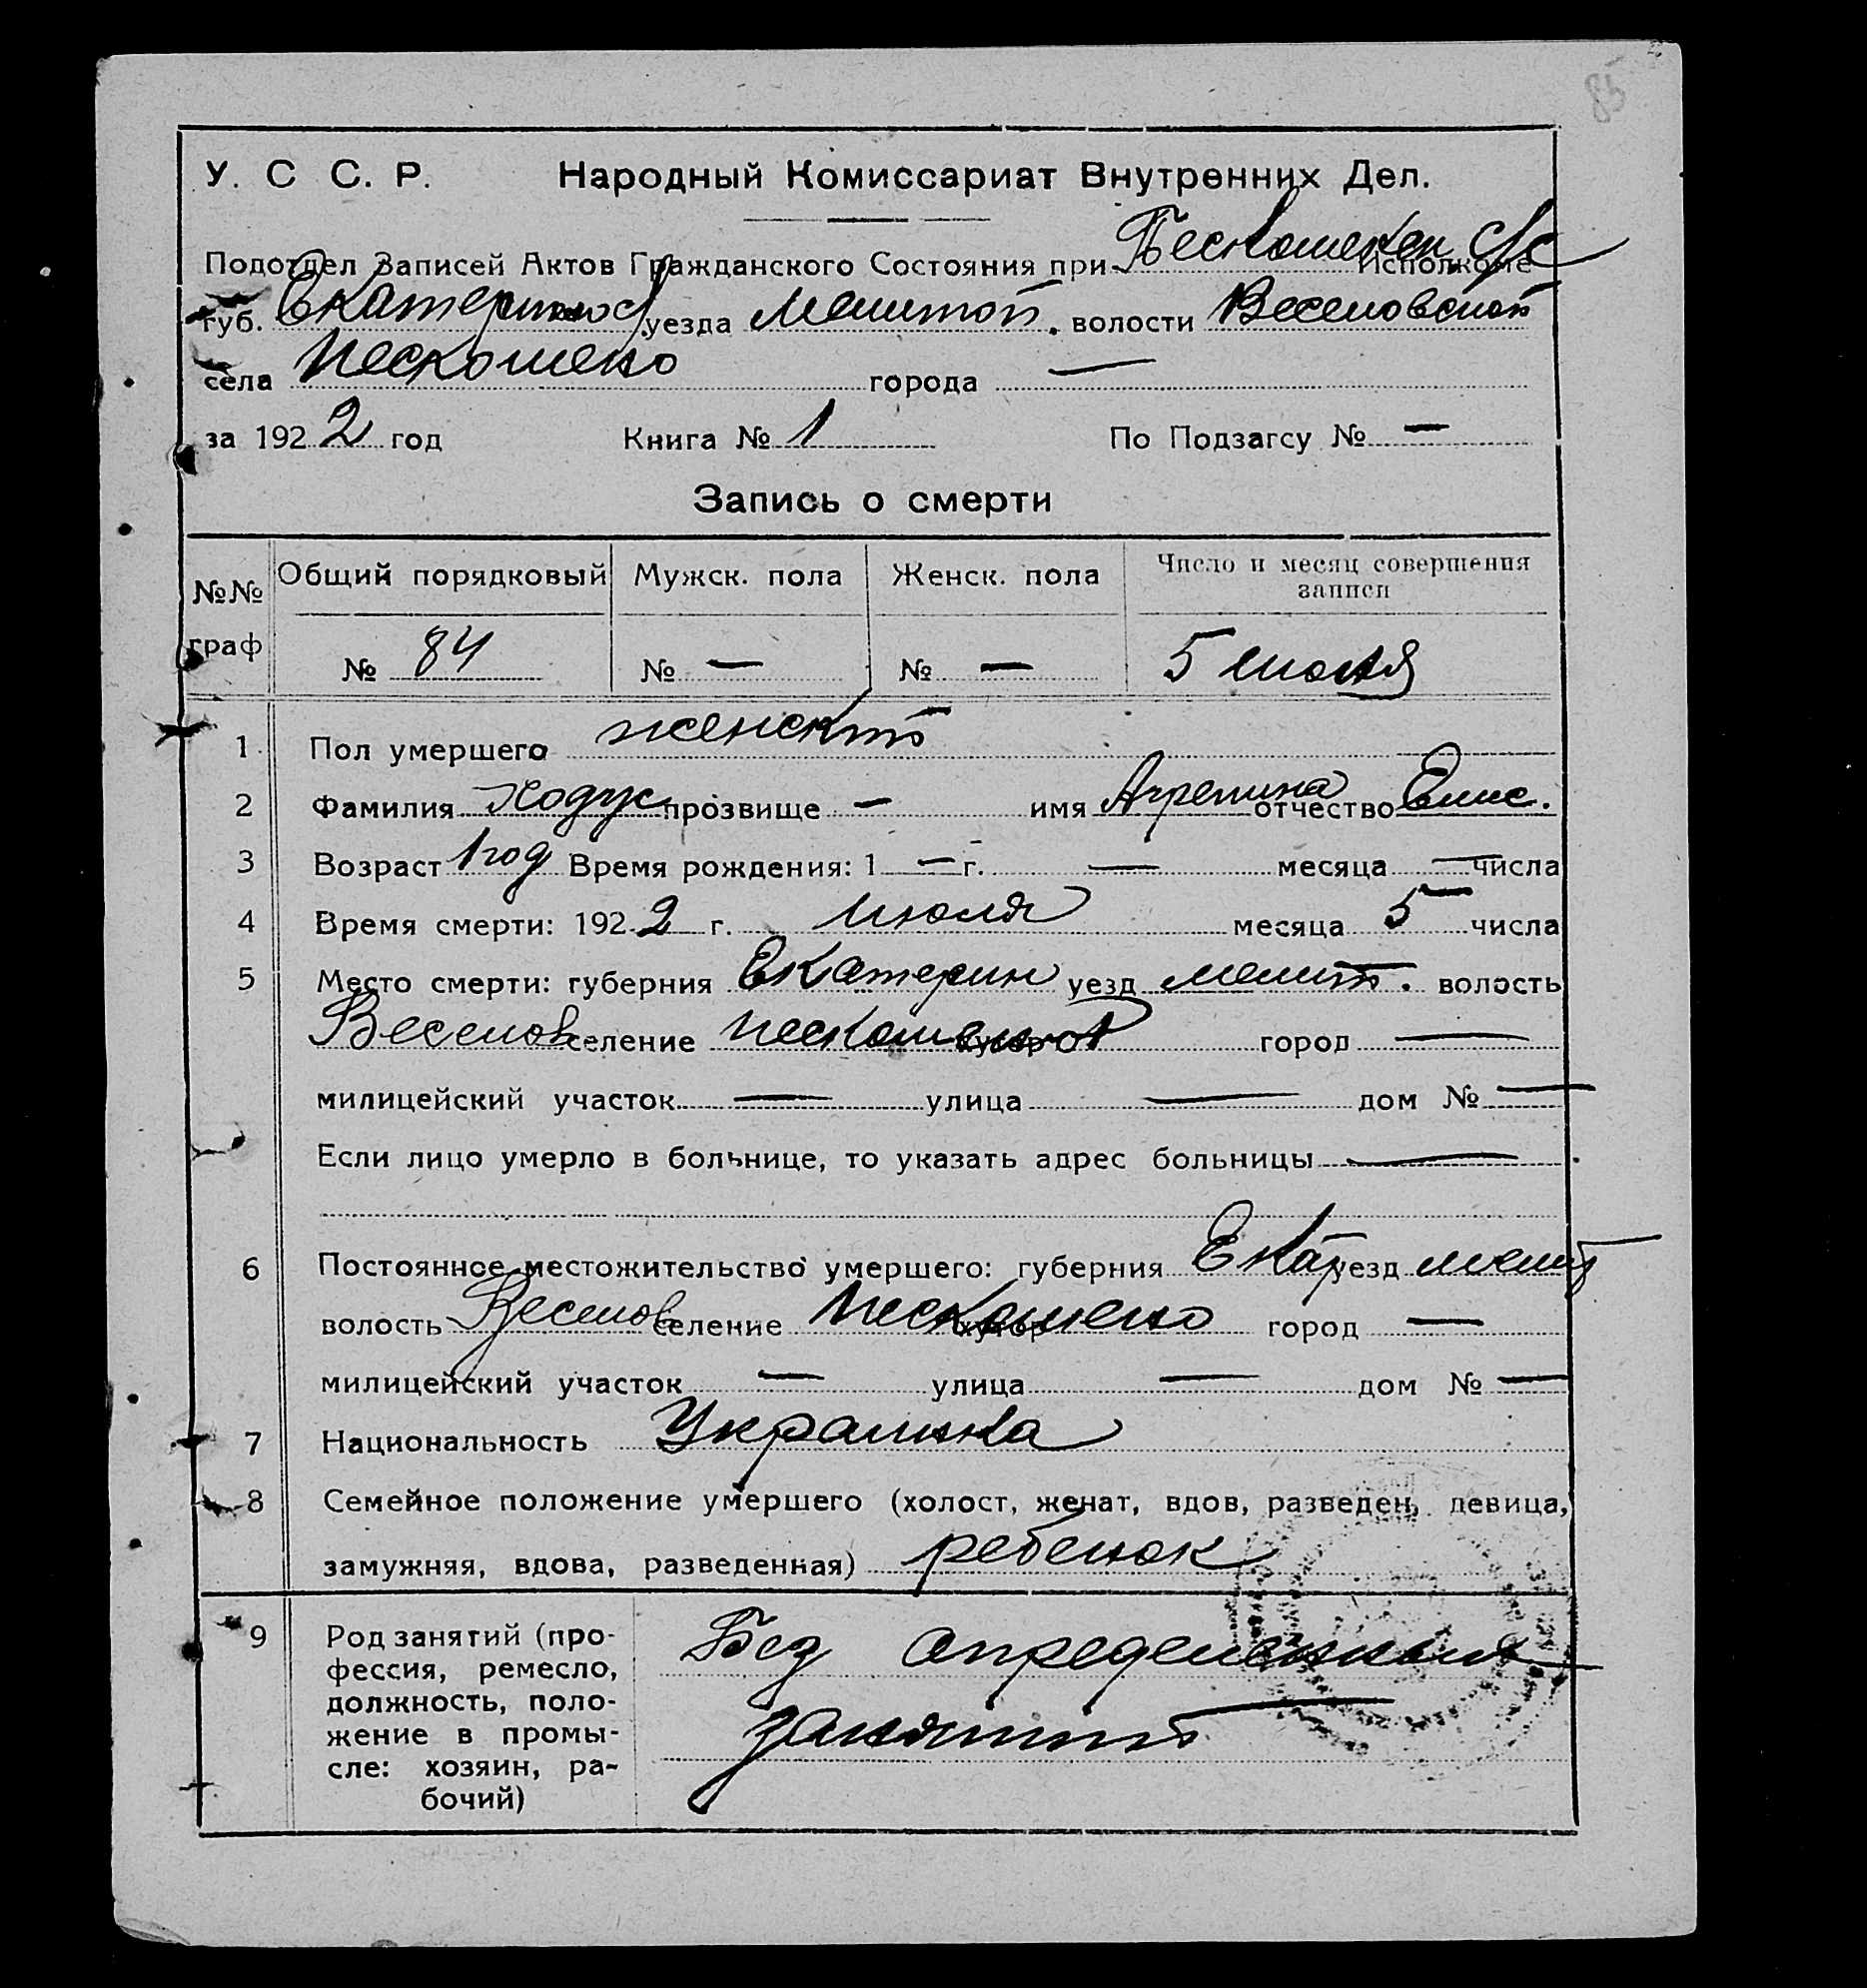 85
У. С С. Р. Народный Комиссариат Внутренних Дел.
Подотдел Записей Актов Гражданского Состояния при Исполкоме с/с
губ. Екатеринос уезда Мелитоп. волости Веселовской
села Нескошено города —
за 1922 год Книга № 1 По Подзагсу № —
Запись о смерти
№№ граф Общий порядковый Мужск. пола Женск. пола Число и месяц совершения записи
№ 84 № — № — 5 июля
1 Пол умершего женский
2 Фамилия Ходус прозвище — имя Агрепина отчество Елис.
3 Возраст 1 год Время рождения: 1 — г. — месяца — числа
4 Время смерти: 1922 г. июля месяца 5 числа
5 Место смерти: губерния Екатерин уезд мелит. волость
Веселов селение хутор город —
милицейский участок — улица — дом № —
Если лицо умерло в больнице, то указать адрес больницы —
6 Постоянное местожительство умершего: губерния Екат уезд мелит
волость Веселов селение Нескошено хутор город —
милицейский участок — улица — дом № —
7 Национальность Украинка
8 Семейное положение умершего (холост, женат, вдов, разведен, девица,
замужняя, вдова, разведенная) ребенок
9 Род занятий (про-
фессия, ремесло,
должность, поло-
жение в промы-
сле: хозяин, ра-
бочий)
Без определенных
занятий